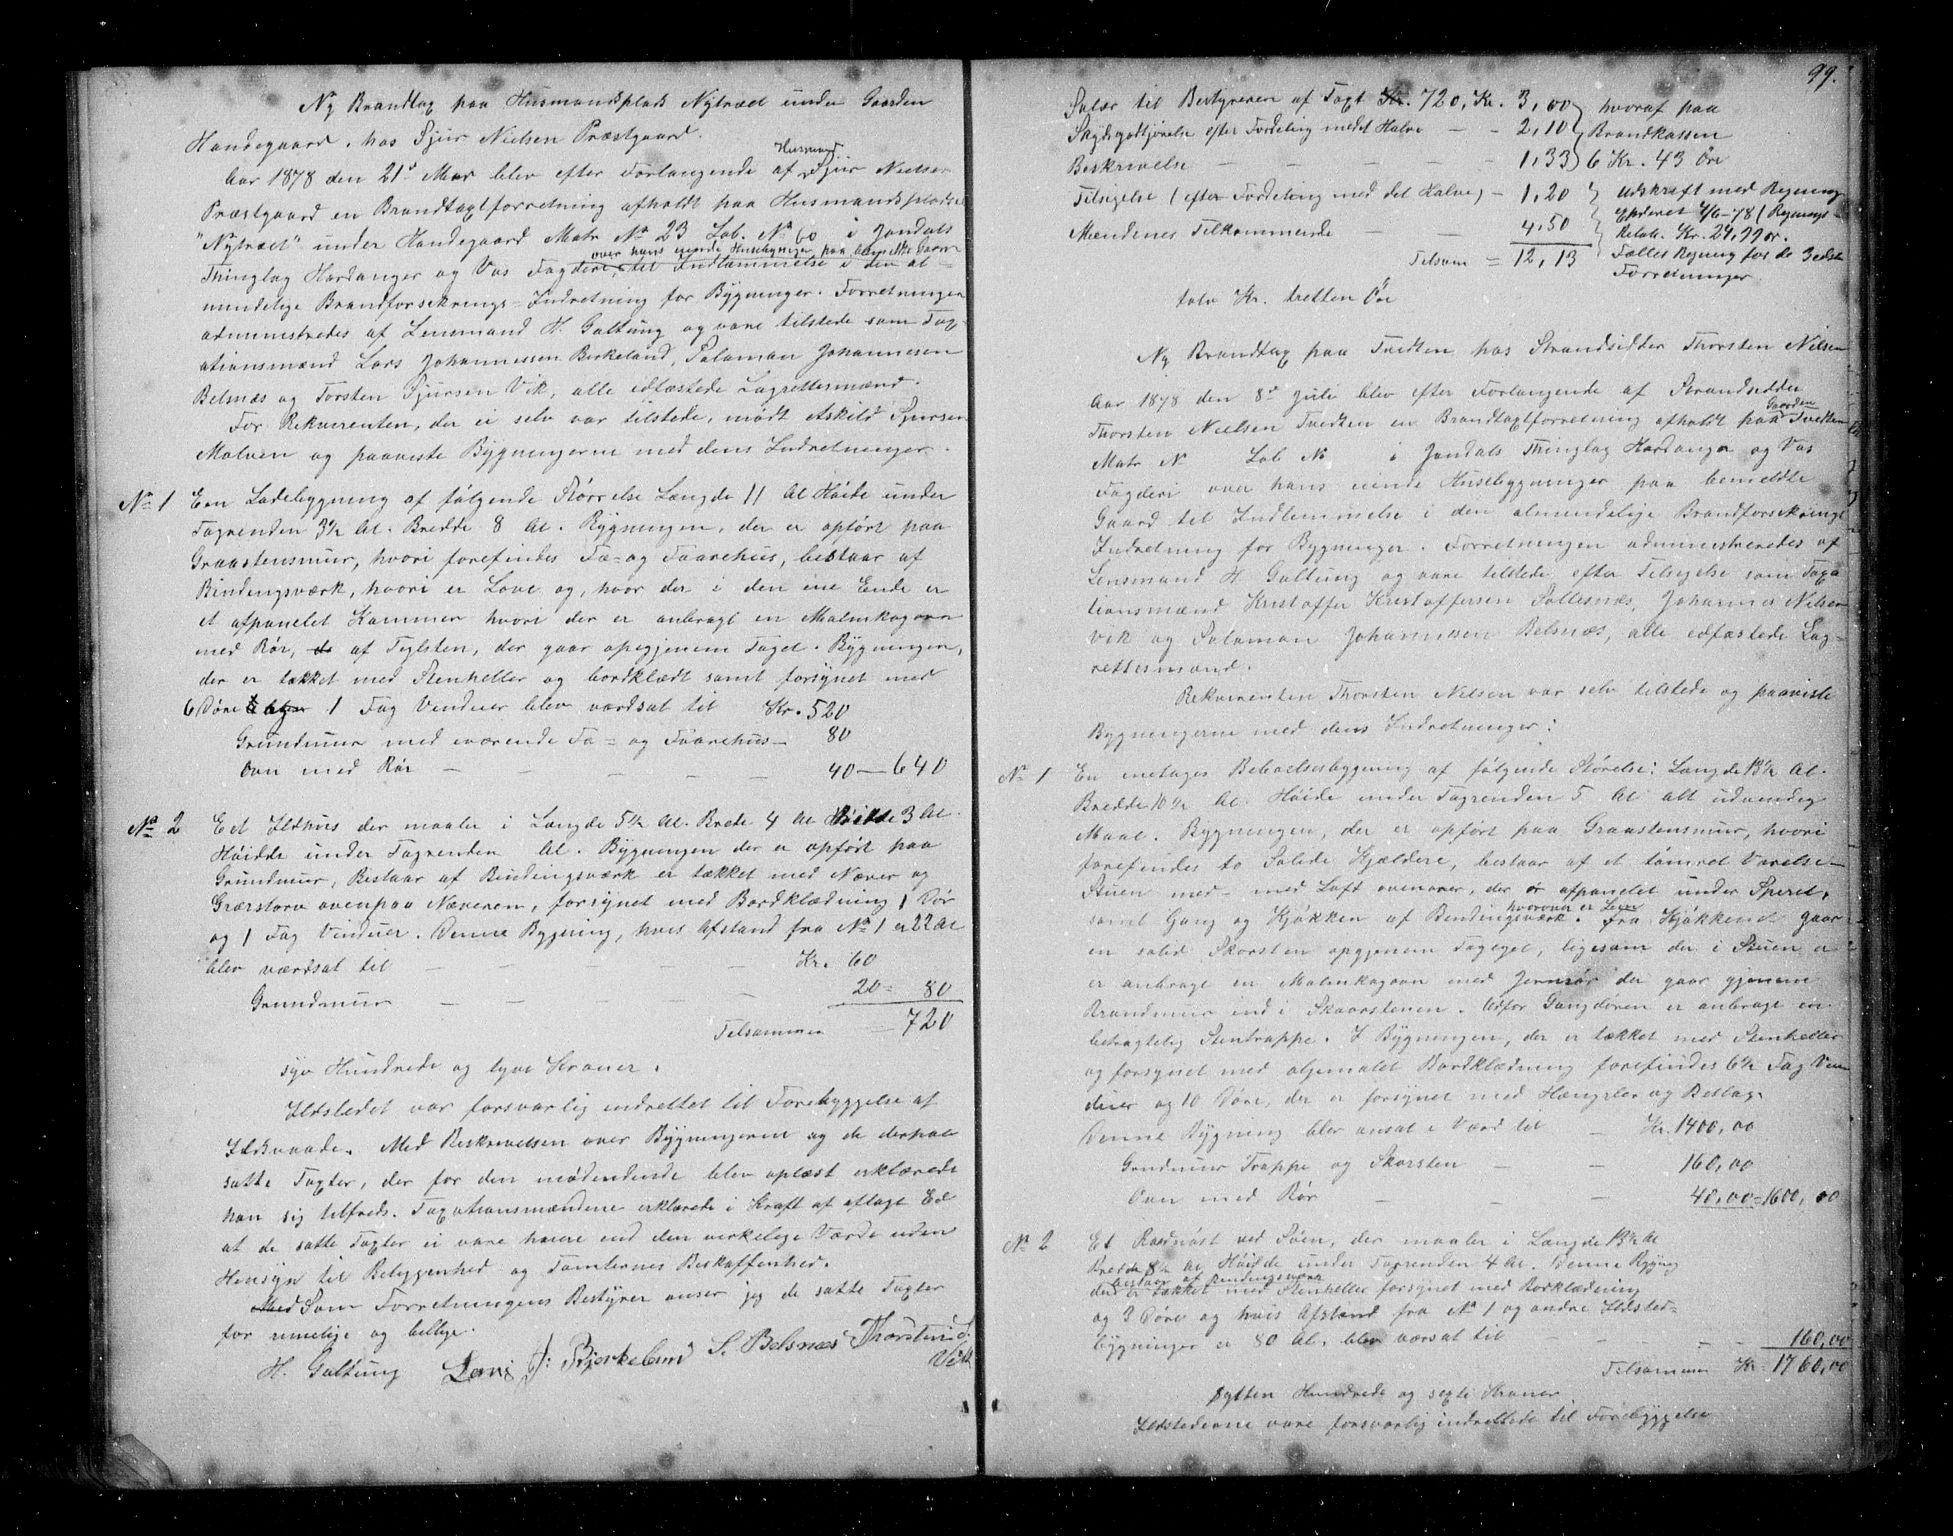 Ny Brandtax paa Husmandsplads Nytræet under Gaarden
Handegaard, hos Sjur Nielsen Præstgaard.
Aar 1878 den 21de Mai blev efter Forlangende af Husmand Sjur Nielsen
Præstgaard en Brandtaxtforretning afholdt paa Husmandspladsen
"Nytræet" under Handegaard Matr No 23 Lob. No 60 i Jondals
Thinglag Hardanger og Vos Fogderi, over hans ieiende Husebygninger paa bemeldte Gaard
til Indlemmelse i den al-
mindelige Brandforsikrings-Indretning for Bygninger. Forretningen
administredes af Lensmand H. Galtung og vare tilstede som Tax-
ationsmænd Lars Johannessen Birkeland, Salamon Johannesen
Belsnæs og Torsten Sjursen Vik, alle edfæstede Lagrettesmænd.
For Rekvirenten, der ei selv var tilstede, mødt Askild Sjursen
Malven og paaviste Bygningerne med dens Indretninger.
No 1 Een Ladebygning af følgende Størrelse Længde 11 Al Høide under
Tagrenden 3½ Al. Bredde 8 Al. Bygningen, der er opført paa
Graastensmur, hvori forefindes Fæ- og Faarehus, bestaar af
Bindingsværk, hvori er Love og, hvor der i den ene Ende er
et afpanelet Kammer hvori der er anbragt en Malmkagovn
med Rør, af Teglsten, der gaar opigjenem Taget. Bygningen,
der er tækket med Stenheller og bordklædt samt forsynet med
6 Døre 1 Fag Vinduer blev værdsat til Kr. 520
Grundmur med iværende Fæ- og Faarehus — 80
Ovn med Rør — — — — — 40 — 640
No 2 Eet Ildhus der maaler i Længde 5½ Al. Brede 4 Al 3 Al.
Høidde under Tagrenden Al. Bygningen der er opført paa
Grundmur, Bestaar af Bindingsværk er tækket med Næver og
Græstorv ovenpaa Næveren, forsynet med Bordklædning 1 Dør
og 1 Fag Vinduer. Denne Bygning, hvis Afstand fra No 1 er 22 Al
blev værdsat til — — — Kr. 60
Grundmur — — — — 20 = 80
Tilsammen = 720
syv Hundrede og tyve Kroner.
Ildstedet var forsvarlig indrettet til Forebyggelse af
Ildsvaade. Med Beskrivelsen over Bygningerne og de derpaa
satte Taxter, der for den mødendende blev oplæst erklærede
han sig tilfreds. Taxationsmændene erklærede i Kraft af aflagt Ed
at de satte Taxter ei vare høiere end den virkelige Værdi uden
Hensyn til Beliggenhed og Tomternes Beskaffenhed.
Med Som Forretningens Bestyrer anser jeg de satte Taxter
for rimelige og billige.
H. Galtung Lars J: Bjerkeland S. Belsnæs Thorsten S.
Vik
99.
Salær til Bestyreren af Taxt Kr. 720, Kr. 3,00 } hvoraf paa
Skydsgodtjørelse efter Fordeling medet Halve — - 2,10 } Brandkassen
Beskrivelse — — — — 1,33 } 6 Kr. 43 Øre
Tilsigelse (efter Fordeling med det Halve) - 1,20 } Udskrift med Regning
Mændenes Tilkommende — — 4,50 } Expederet 4/6-78 (Regnings-
Relat. Kr. 24,99 ør.
Tilsam = 12,13 Fælles Regning for de 3 sidste
Forretninger.
tolv Kr. tretten Øre
Ny Brandtax paa Tvedten hos Strandsidder Thorsten Nilsen
Aar 1878 den 8de Juli blev efter Forlangende af Strandsidder
Thorsten Nielsen Tvedten en Brandtaxtforretning afholdt paa Gaarden Tvedten
Matr No Lob No i Jondals Thinglag Hardanger og Vos
Fogderi over hans eiende Husebygninger paa bemeldte
Gaard til Indlemmelse i den almindelige Brandforsikrings
Indretning for Bygninger. Forretningen administreredes af
Lensmand H. Galtung og vare tilstede efter Tilsigelse som Taxa
tionsmænd Kristoffer Kristoffersen Sollesnæs, Johannes Nilsen
Vik og Salamon Johannesen Belsnæs, alle edfæstede Lag-
rettesmænd.
Rekvirenten Thorsten Nielsen var selv tilstede og paaviste
Bygningerne med dens Indretninger:
No 1 En enetages Beboelsesbygning af følgende Størelse: Længde 13½ Al.
Bredde 10½ Al. Høide under Tagrenden 5 Al alt udvendig
Maal. Bygningen, der er opført paa Graastensmur, hvori
forefindes to Solide Kjældere, bestaar af et tømret Værelse-
Stuen med- med Loft ovenover, der er afpanelet under Speret,
samt Gang og Kjøkken af Bendingsværk. hvorover er Lem Fra Kjøkkenet gaar
en solid Skorsten opgjenem Tagget, ligesom der i Stuen er
er anbragt en Malmkagovn med Jernrør der gaar gjenem
Brandmur ind i Skorstenen. Udfor Gangdøren er anbragt en
betragtelig Stentrappe. I Bygningen, der er tækket med Stenheller
og forsynet med oljemalet Bordklædning forefindes 6½ Fag Vin
duer og 10 Døre, der er forsynet med Hængsler og Beslag.
Denne Bygning blev ansat i Værd til — Kr. 1400,00
Grundmur Trappe og Skorsten — — 160,00
Ovn med Rør — — — 40,00 = 1600,00
No 2 Et Raadnøst ved Søen, der maaler i Længde 13½ Al
Bredde 8½ Al, Høidde under Tagrenden 4 Al. Denne Bygning
bestaar af Bendingsværk
der er tækket med Stenheller forsynet med Borklædning
og 3 Døre og hvis Afstand fra No 1 og andre Ildsted-
bygninger er 80 Al. blev værsat til — - - 160,00
Tilsammen Kr. 1760,00
Sytten Hundrede og sexti Kroner.
Ildstederne vare forsvarlig indrettede til Forebyggelse